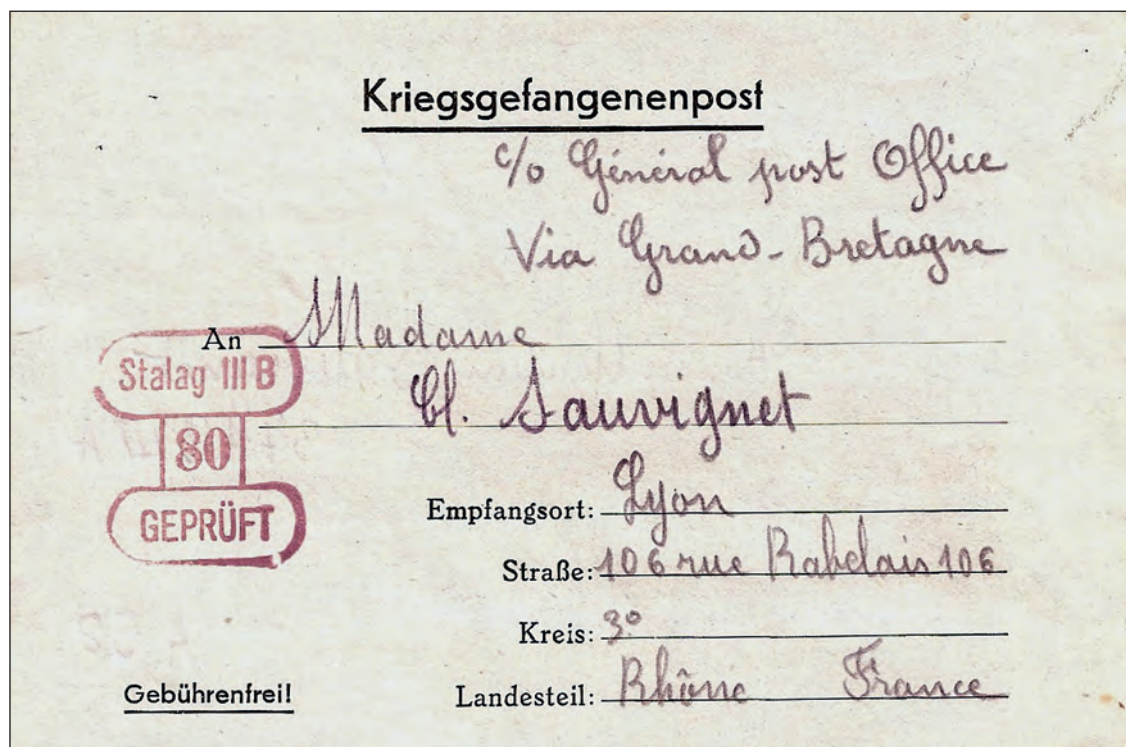 Kriegsgefangenenpost
c/o Général post Office
Via Grand-Bretagne
An Madame
Cl. Sauvignet
Stalag III B
80
GEPRÜFT
Empfangsort: Lyon
Straße: 106 rue Rabelais 106
Kreis: 3º
Gebührenfrei!
Landesteil: Rhône France